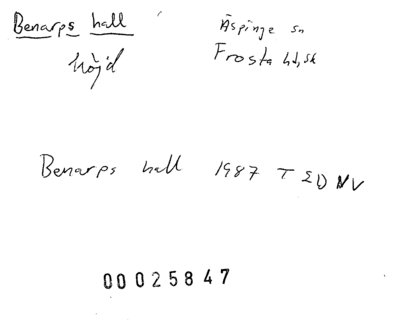 Benarps hall
Äspinge sn
höjd
Frosta hd, Sk
Benarps hall 1987 T ED NV
00025847